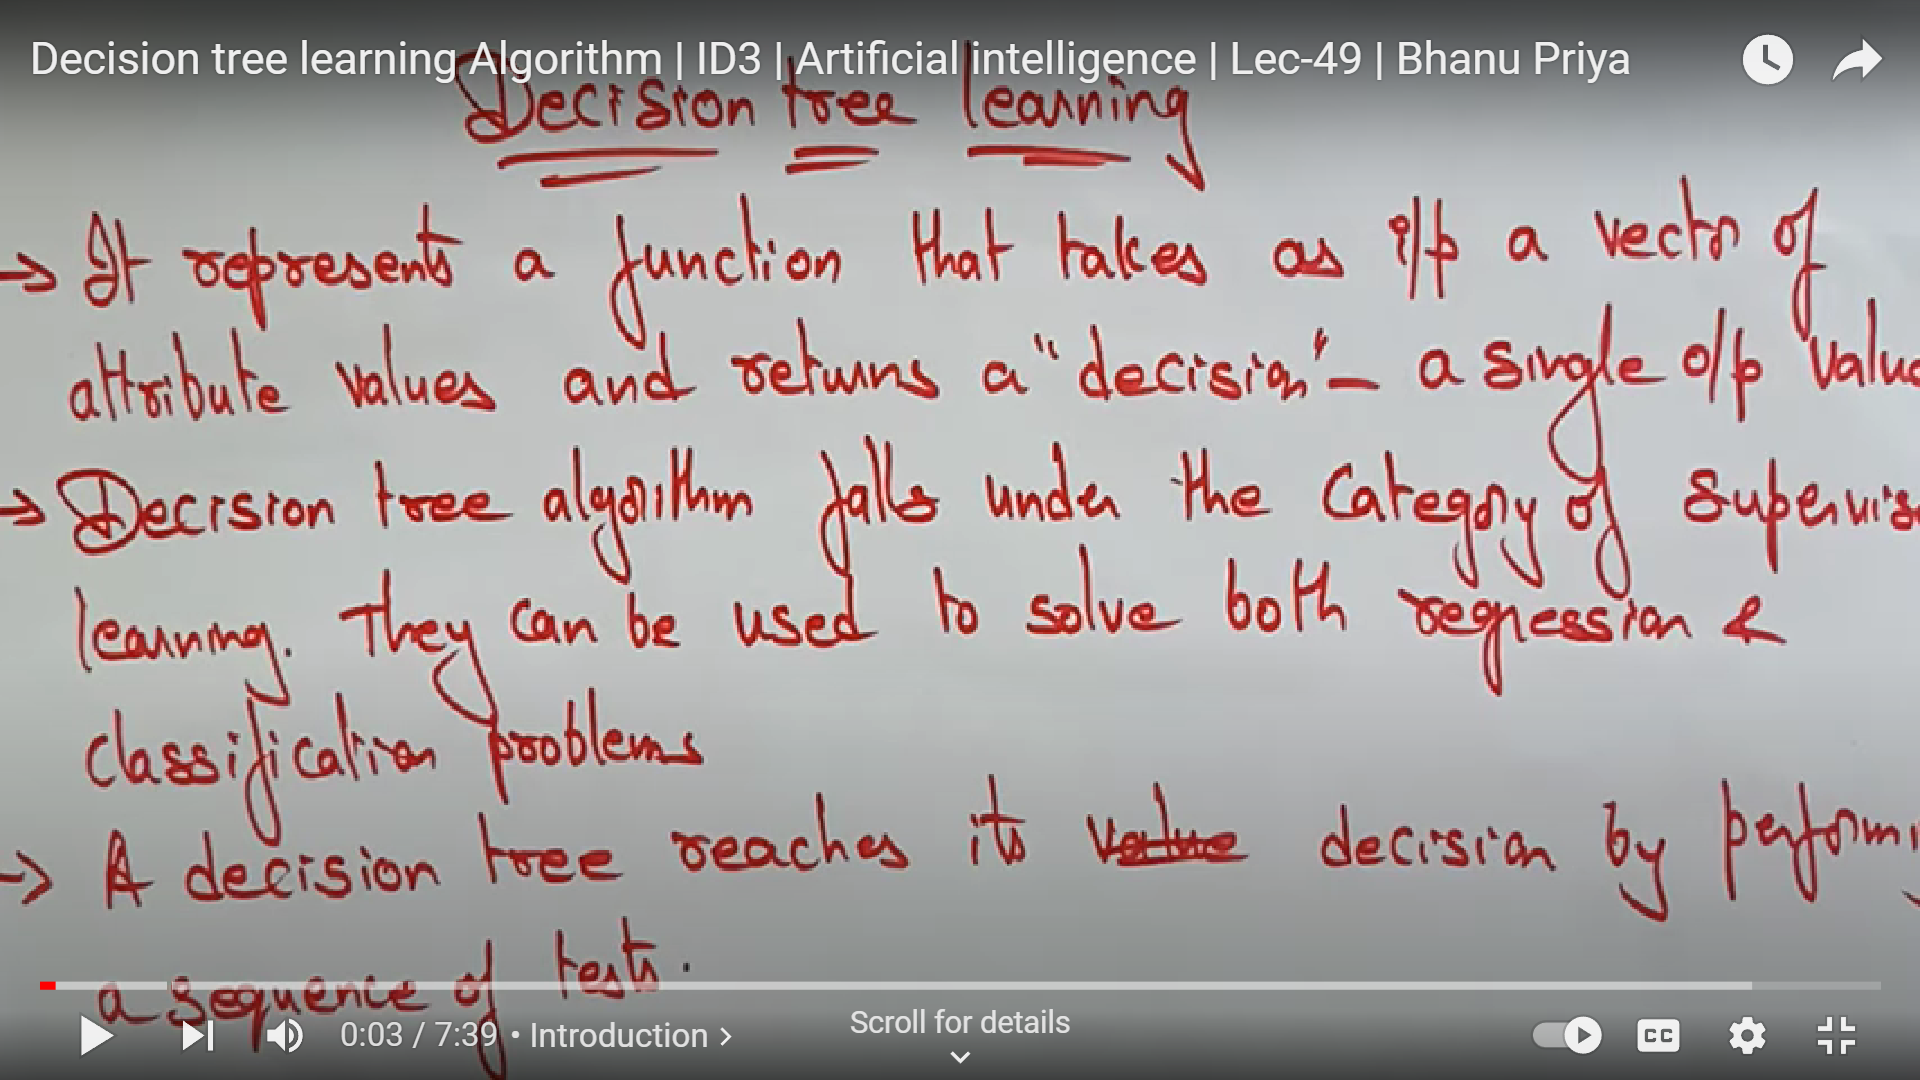 Decision tree learning Algorithm | ID3 | Artificial intelligence | Lec-49 | Bhanu Priya
Decision tree learning
→ It represents a function that takes as i/p a vector of
attribute values and returns a "decision" — a single o/p value
→ Decision tree algorithm falls under the Category of Supervis
learning. They can be used to solve both regression &
classification problems
→ A decision tree reaches its value decision by performi
a sequence of tests.
0:03 / 7:39 • Introduction >
Scroll for details
CC